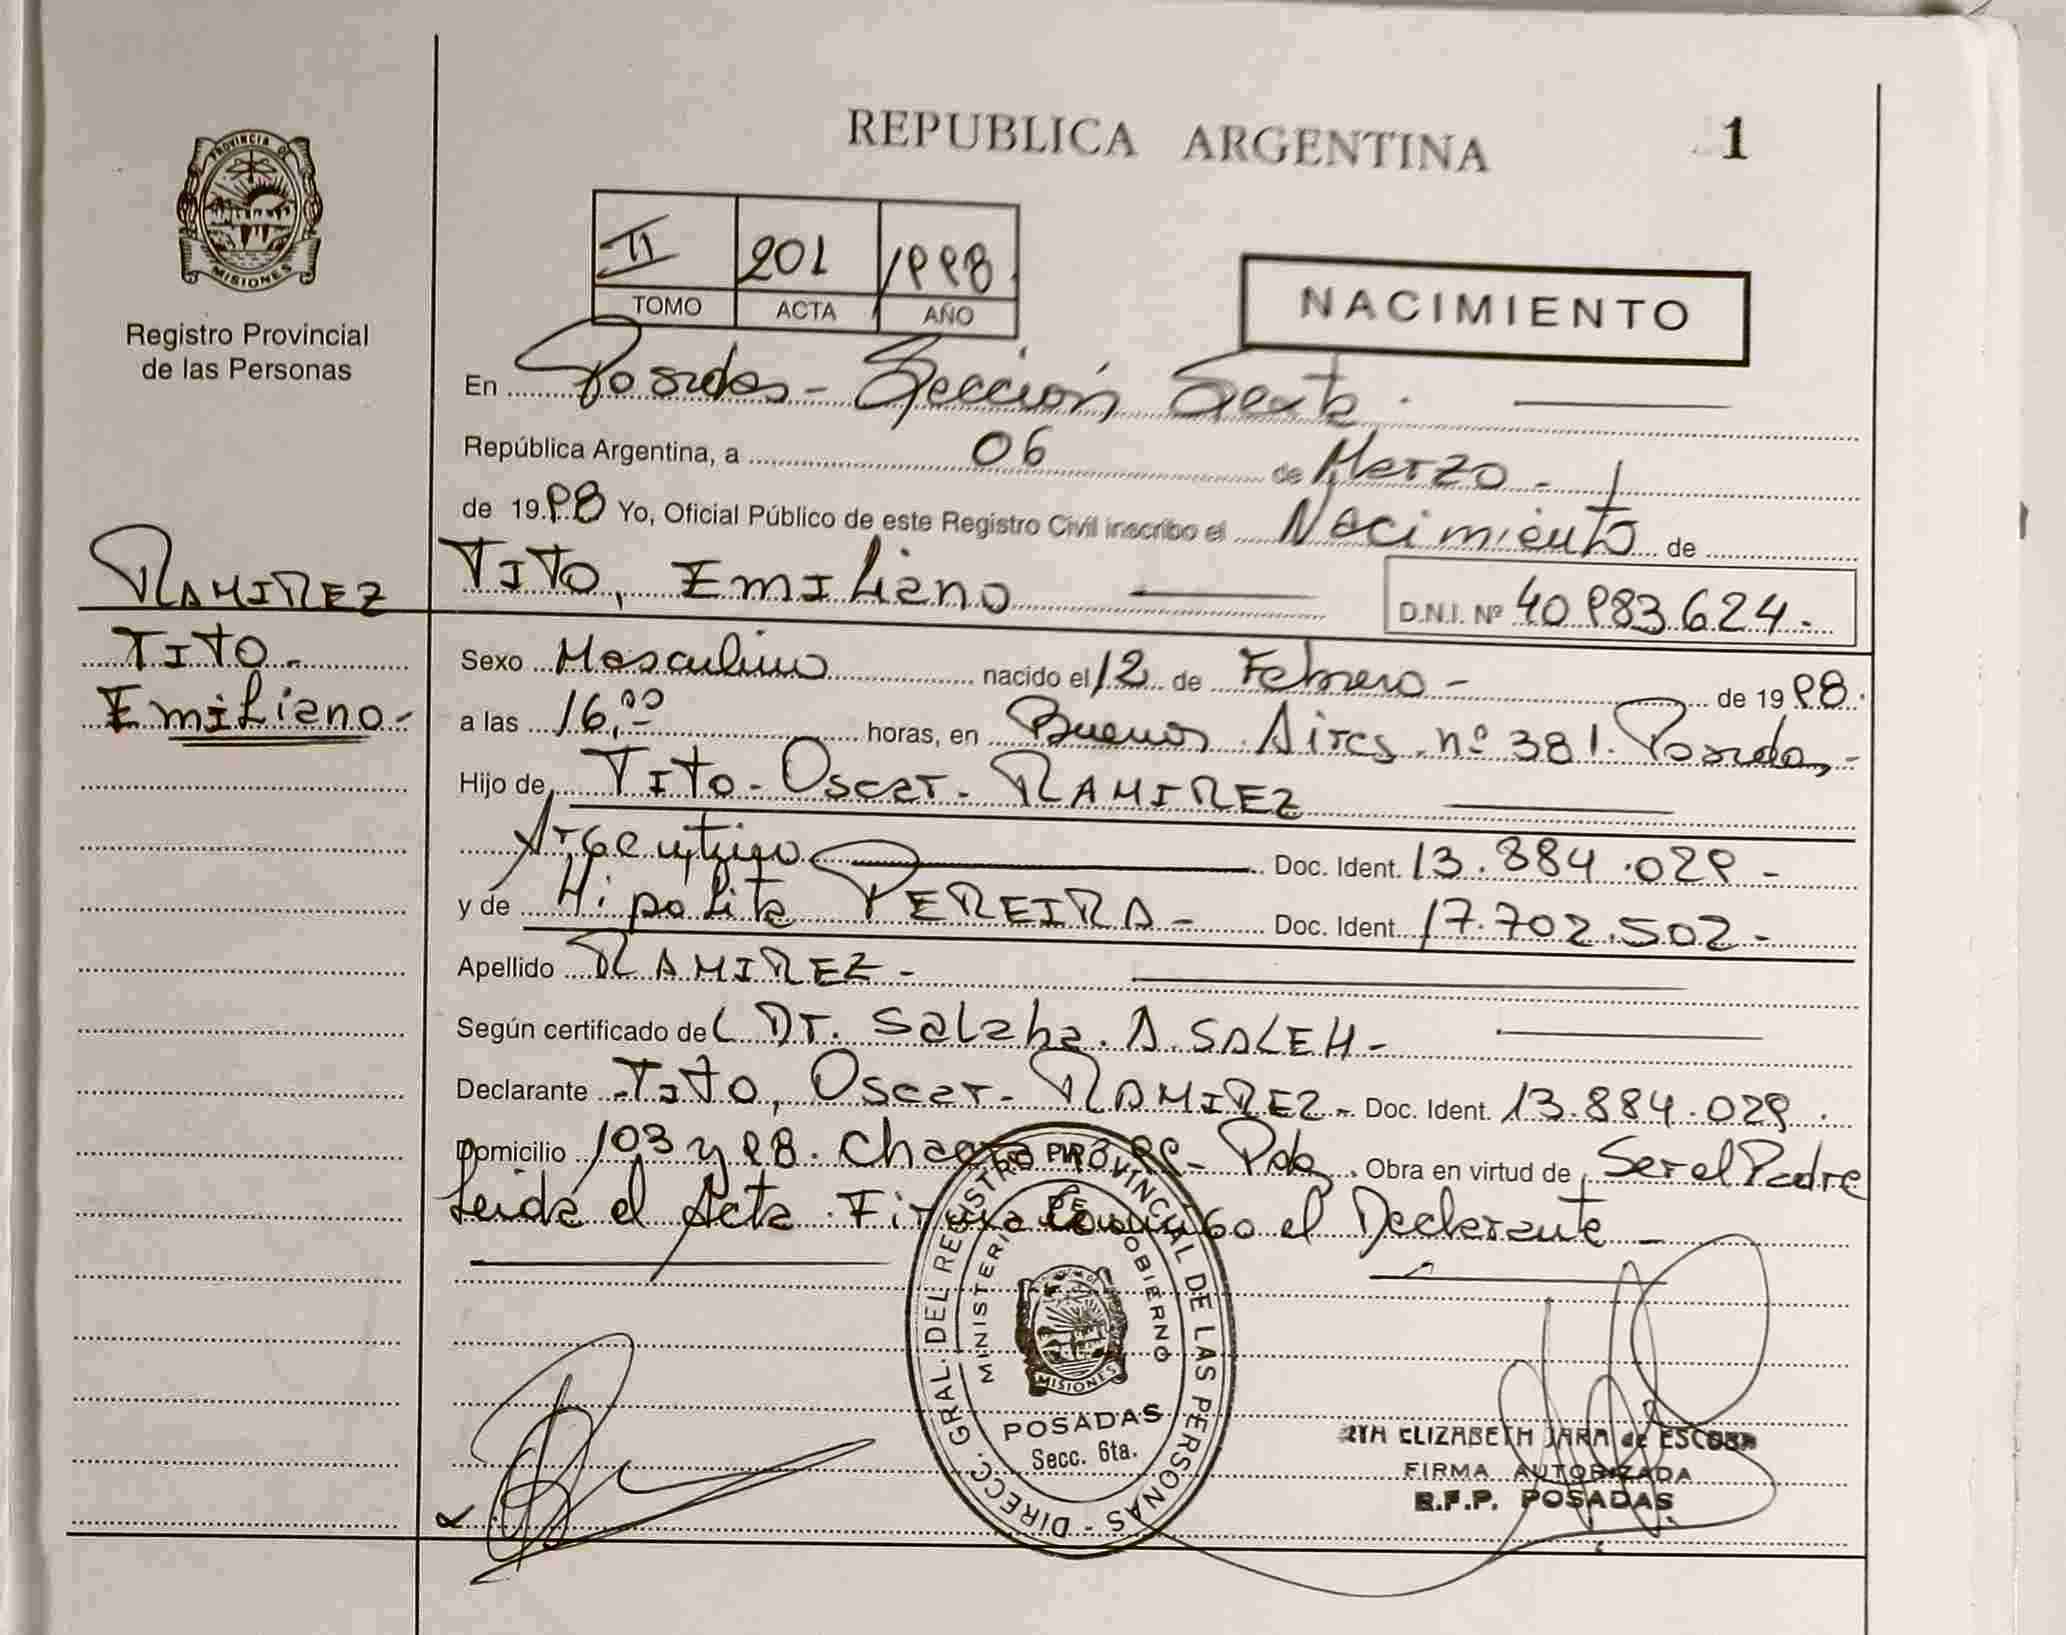 REPUBLICA ARGENTINA
1
PROVINCIA DE
MISIONES
Registro Provincial
de las Personas
II 201 1998
TOMO ACTA AÑO
NACIMIENTO
En Posadas - Sección Sexta.
República Argentina, a 06 de Marzo -
de 1998 Yo, Oficial Público de este Registro Civil inscribo el Nacimiento de
Tito, Emiliano D.N.I. Nº 40983.624.-
RAMIREZ
Tito.-
Emiliano.-
Sexo Masculino nacido el 12 de Febrero - de 1998.
a las 16,00 horas, en Buenos Aires nº 381. Posadas,-
Hijo de Tito - Oscar - RAMIREZ
Argentino Doc. Ident. 13.884.029 -
y de Hipolita PEREIRA - Doc. Ident. 17.702.502 -
Apellido RAMIREZ -
Según certificado de Dr. A. SALEH -
Declarante Tito, Oscar - RAMIREZ - Doc. Ident. 13.884.029.
Domicilio 103 y 98. Pdas. Obra en virtud de Ser el Padre
Leida el Acta Firma Conmigo el Declarante -
DIRECC. GRAL. DEL REGISTRO PROVINCIAL DE LAS PERSONAS -
MINISTERIO DE GOBIERNO
MISIONES
POSADAS
Secc. 6ta.
ELIZABETH JARA de ESCOBAR
FIRMA AUTORIZADA
R.P.P. POSADAS